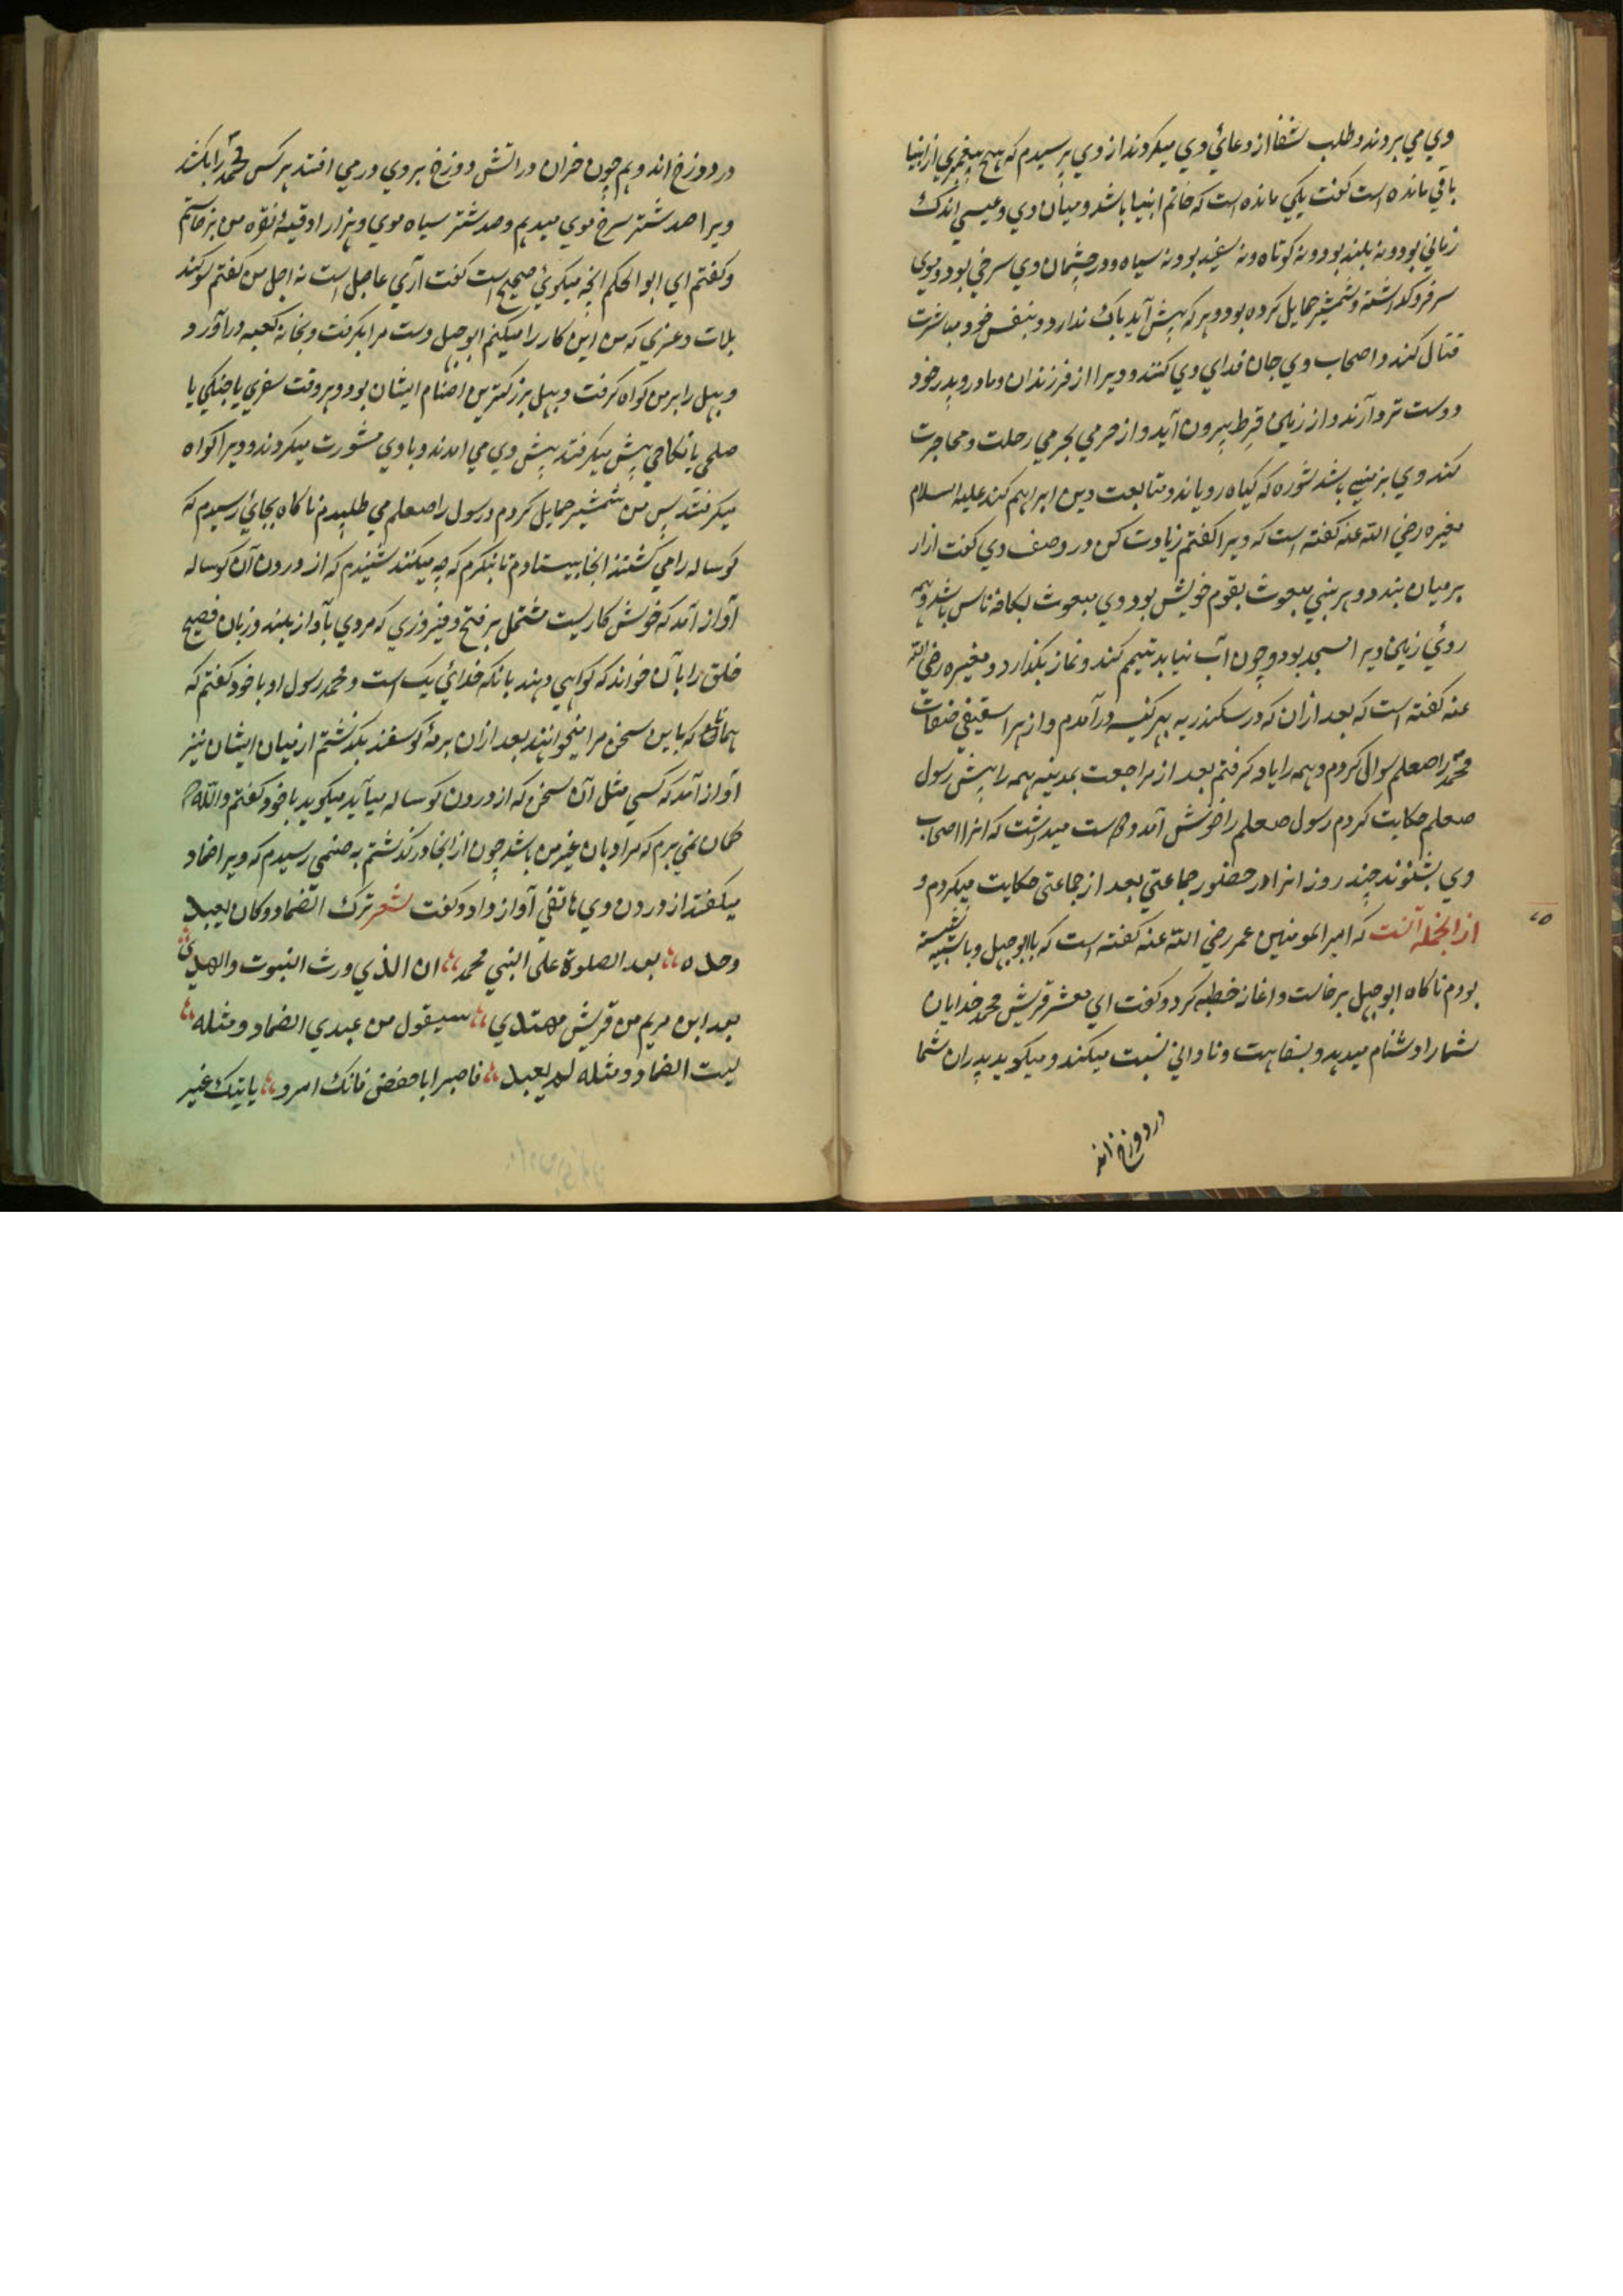 وي مي بردند و طلب شفا از دعائي وي ميكردند از وي پرسيدم كه هيچ پيغمبري از انبيا
باقي مانده است كفت يكي مانده است كه خاتم انبيا باشد و ميان وي و عيسي اندك
زماني بود و نه بلند بود و نه كوتاه و نه سفيد بود و نه سياه و در چشمان وي سرخي بود و موي
سر فرو كذاشته و شمشير حمايل كرده بود و هر كه پيش آيد باك ندارد و بنفس خود مباشرت
قتال كند و اصحاب وي جان فداي وي كنند و ويرا از فرزندان و مادر و پدر خود
دوست تر دارند و از زمين قرظ بيرون آيد و از حرمي بحرمي رحلت و مهاجرت
كند و وي بزميني باشد شوره كه كياه روياند و متابعت دين ابراهيم كند عليه السلام
مغيره رضي الله عنه كفته است كه ويرا كفتم زيادت كن در وصف وي كفت ازار
بر ميان بندد و هر نبي مبعوث بقوم خويش بود و وي مبعوث بكافه ناس باشد و همه
روئي زمين ويرا مسجد بود و چون آب نيابد تيمم كند و نماز بكذارد و مغيره رضي الله
عنه كفته است كه بعد ازان كه در سكندريه بهر كنيسه در آمدم و از هر اسقيفي صفات
محمد را صعلم سوال كردم و همه را ياد كرفتم بعد از مراجعت بمدينه همه را پيش رسول
صعلم حكايت كردم رسول صعلم را خوش آمد و دوست ميداشت كه انرا اصحاب
وي بشنوند چند روز انرا در حضور جماعتي بعد از جماعتي حكايت ميكردم و
از انجمله آنست كه امير المومنين عمر رضي الله عنه كفته است كه با ابو جهل و با شيبه نشسته
بودم ناكاه ابو جهل برخاست و اغاز خطبه كرد و كفت اي معشر قريش محمد خدايان
شما را دشنام ميدهد و بسفاهت و ناداني نسبت ميكند و ميكويد پدران شما
در دوزخ اند
در دوزخ اند و هم چون خران در اتش دوزخ بروي در مي افتند هر كس محمد را بكشد
ويرا صد شتر سرخ موي ميدهم و صد شتر سياه موي و هزار اوقيه نقره من برخاستم
و كفتم اي ابو الحكم انچه ميكوئي صحيح است كفت آري عاجل است نه اجل من كفتم سوكند
بلات و عزي كه من اين كار را ميكنم ابو جهل دست مرا بكرفت و بخانه كعبه در آورد
و هبل را بر من كواه كرفت و هبل بزركترين اصنام ايشان بود و هر وقت سفري يا جنكي يا
صلحي يا نكاحي پيش ميكرفتند پيش وي مي امدند و با وي مشورت ميكردند و ويرا كواه
ميكرفتند پس من شمشير حمايل كردم و رسول را صعلم مي طلبيدم ناكاه بجائي رسيدم كه
كوساله را مي كشتند انجا بيستادم تا بنكرم كه چه ميكنند شنيدم كه از درون آن كوساله
آواز آمد كه خوش كاريست مشتمل بر فتح و فيروزي كه مردي بآواز بلند و زبان فصيح
خلق را بآن خواند كه كواهي دهند بانكه خدائي يك است و محمد رسول او با خود كفتم كه
همانا كه باين سخن مرا ميخوانند بعد ازان برمه كوسفند بكذشتم از ميان ايشان نيز
آواز آمد كه كسي مثل آن سخن كه از درون كوساله ميآيد ميكويد با خود كفتم والله كه
كمان نمي برم كه مراد بان غير من باشد چون از انجا در كذشتم به صنمي رسيدم كه ويرا ضماد
ميكفتند از درون وي هاتفي آواز داد و كفت شعر ترك الضماد و كان يعبد
وحده بعد الصلوة على النبي محمد ان الذي ورث النبوت والهدى
بعد ابن مريم من قريش مهتدي سيقول من عبدي الضماد و مثله
ليت الضماد و مثله لم يعبد فاصبر ابا حفص فانك امرو ياتيك غير